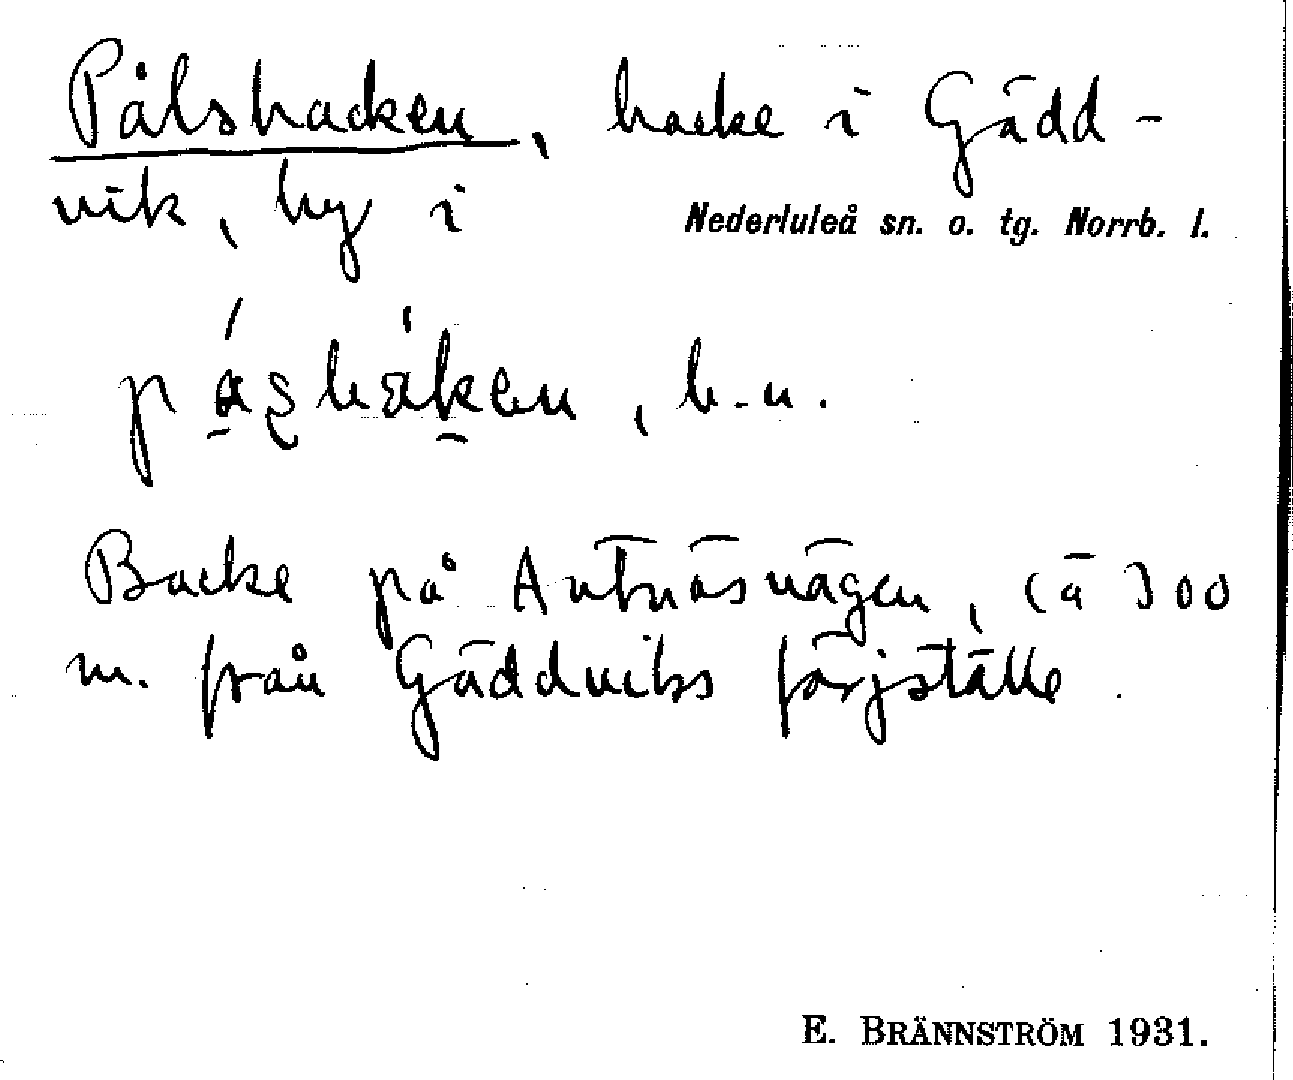 Pålsbacken, backe i Gädd-
vik, by i Nederluleå sn. o. tg. Norrb. l.
Backe på Antnäsvägen, ca 300
m. från Gäddviks färjställe.
E. BRÄNNSTRÖM 1931.